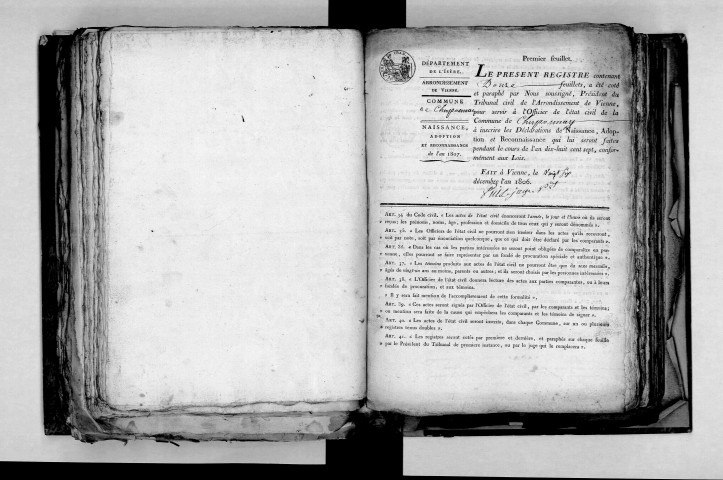 DÉPARTEMENT
DE L'ISÈRE,
ARRONDISSEMENT
DE VIENNE.
COMMUNE
de Chaponnay
NAISSANCE,
ADOPTION
ET RECONNAISSANCE
de l'an 1807.
Premier feuillet.
LE PRESENT REGISTRE contenant
Douze feuillets, a été coté
et paraphé par Nous soussigné, Président du
Tribunal civil de l'Arrondissement de Vienne,
pour servir à l'Officier de l'état civil de la
Commune de Chaponnay
à inscrire les Déclarations de Naissance, Adop-
tion et Reconnaissance qui lui seront faites
pendant le cours de l'an dix-huit cent sept, confor-
mément aux Lois.
FAIT à Vienne, le
décembre l'an 1806.
ART. 34 du Code civil. « Les actes de l'état civil énonceront l'année, le jour et l'heure où ils seront
« reçus; les prénoms, noms, âge, profession et domicile de tous ceux qui y seront dénommés ».
ART. 35. « Les Officiers de l'état civil ne pourront rien insérer dans les actes qu'ils recevront,
« soit par note, soit par énonciation quelconque, que ce qui doit être déclaré par les comparants ».
ART. 36. « Dans les cas où les parties intéressées ne seront point obligées de comparaître en per-
« sonne, elles pourront se faire représenter par un fondé de procuration spéciale et authentique ».
ART. 37. « Les témoins produits aux actes de l'état civil ne pourront être que du sexe masculin,
« âgés de vingt-un ans au moins, parents ou autres; et ils seront choisis par les personnes intéressées ».
ART. 38. « L'Officier de l'état civil donnera lecture des actes aux parties comparantes, ou à leurs
« fondés de procuration, et aux témoins.
« Il y sera fait mention de l'accomplissement de cette formalité ».
ART. 39. « Ces actes seront signés par l'Officier de l'état civil, par les comparants et les témoins;
« ou mention sera faite de la cause qui empêchera les comparants et les témoins de signer ».
ART. 40. « Les actes de l'état civil seront inscrits, dans chaque Commune, sur un ou plusieurs
« registres tenus doubles ».
ART. 41. « Les registres seront cotés par première et dernière, et paraphés sur chaque feuille
« par le Président du Tribunal de première instance, ou par le juge qui le remplacera ».